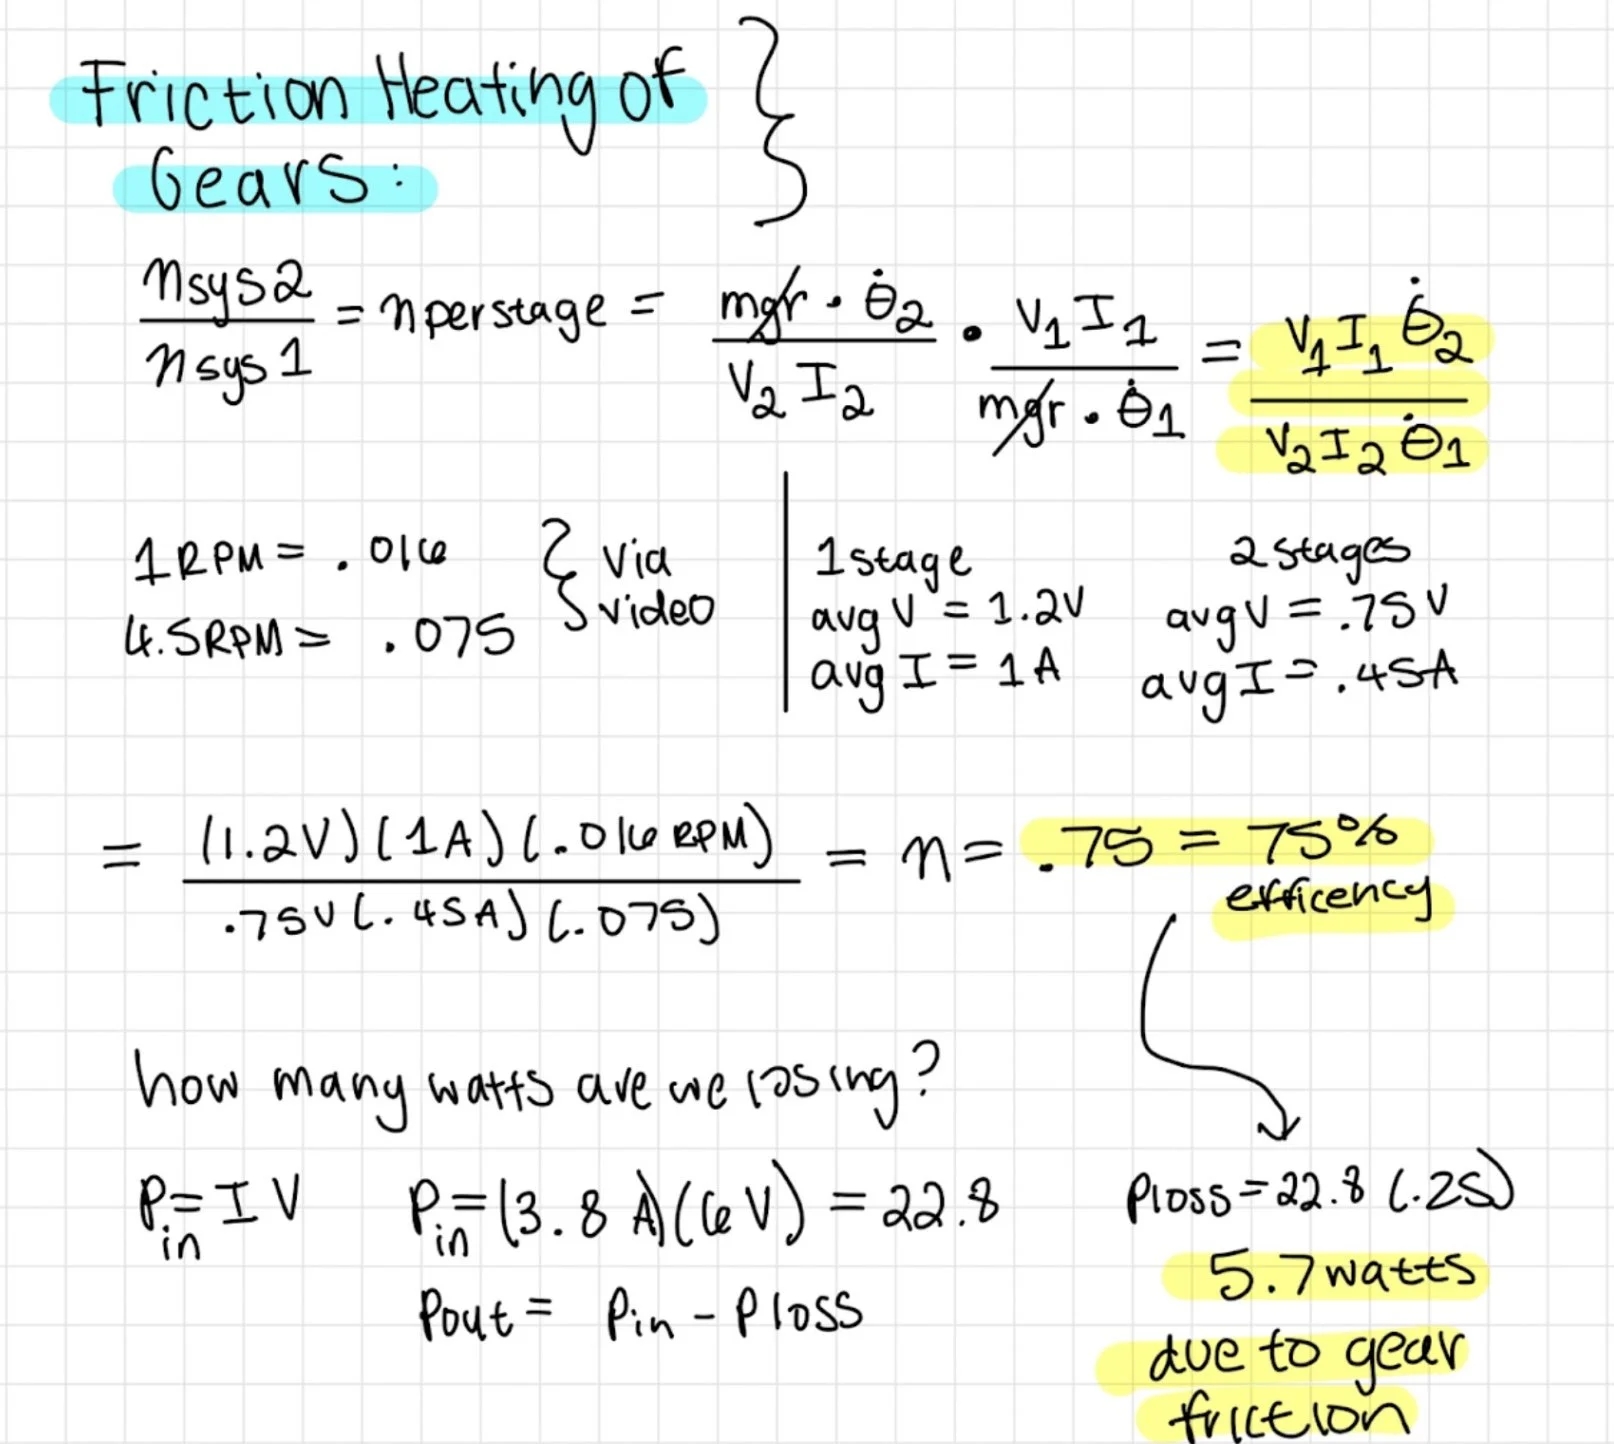 Friction Heating of
Gears:
nsys2 / nsys1 = nperstage = mgr · θ̇2 / V2 I2 · V1 I1 / mgr · θ̇1 = V1 I1 θ̇2 / V2 I2 θ̇1
1RPM = .016 } via
4.5RPM = .075 } video
1stage
avg V = 1.2V
avg I = 1A
2stages
avg V = .75V
avg I = .45A
= (1.2V)(1A)(.016 RPM) / .75V(.45A)(.075) = n = .75 = 75%
efficency
how many watts are we losing?
Pin = IV Pin = (3.8 A)(6V) = 22.8
Pout = Pin - Ploss
Ploss = 22.8 (.25)
5.7 watts
due to gear
friction